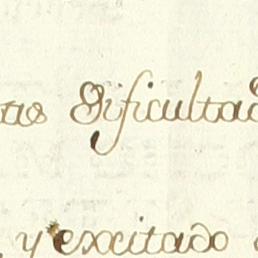 tas dificultad
y excitado